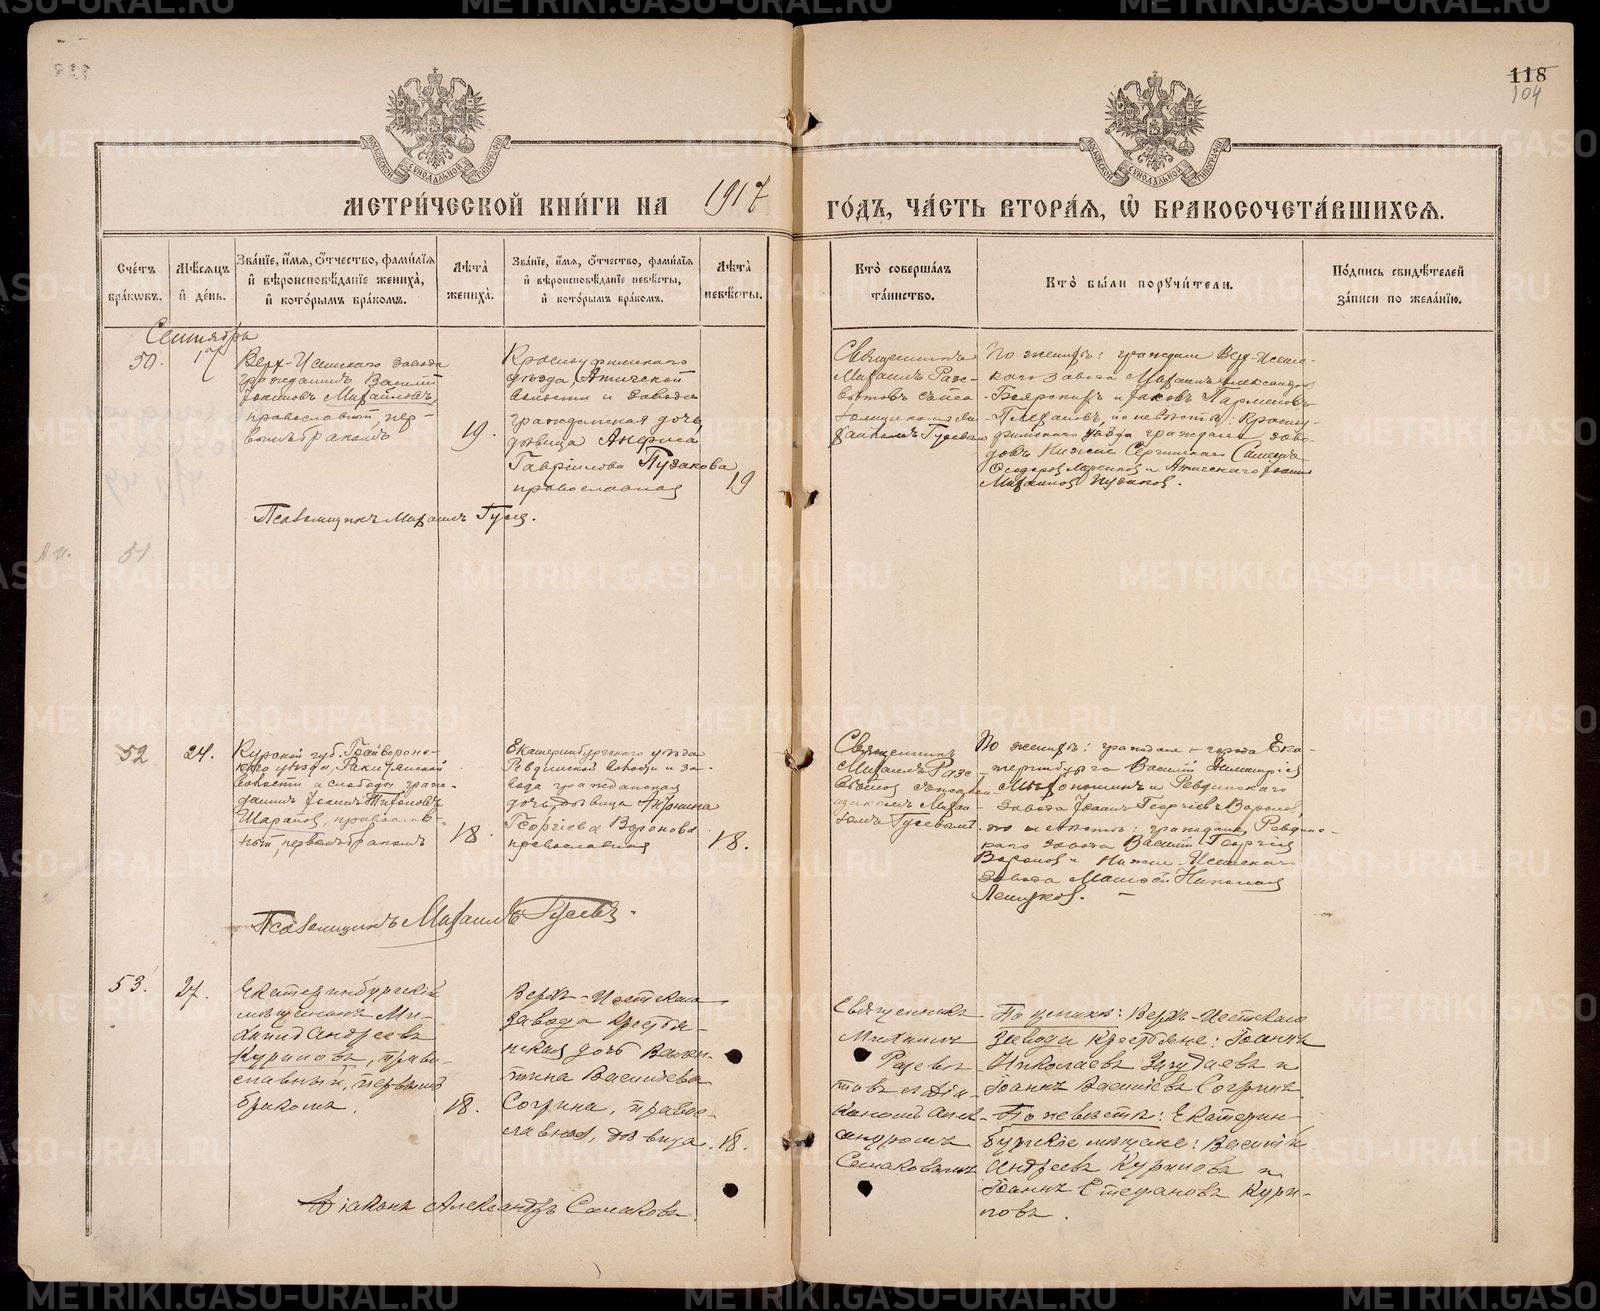 118
104
МОСКОВСКОЙ СѴНОДАЛЬНОЙ ТИПОГРАФІИ
МОСКОВСКОЙ СѴНОДАЛЬНОЙ ТИПОГРАФІИ
МЕТРИ́ЧЕСКОЙ КНИ́ГИ НА 1917
ГО́ДЪ, ЧА́СТЬ ВТОРА́Я, Ѽ БРАКОСОЧЕТА́ВШИХСЯ.
Сче́тъ бра́кѡвъ.
Мѣ́сяцъ и҆ де́нь.
Зва́нїе, и҆́мѧ, ѻ҆́тчество, фами́лїѧ и҆ вѣроисповѣ́данїе жениха̀, и҆ кото́рымъ бра́комъ.
Лѣ́та жениха̀.
Зва́нїе, и҆́мѧ, ѻ҆́тчество, фами́лїѧ и҆ вѣроисповѣ́данїе невѣ́сты, и҆ кото́рымъ бра́комъ.
Лѣ́та невѣ́сты.
Кто̀ соверша́лъ та́инство.
Кто̀ бы́ли порꙋчи́тели.
По́дпись свидѣ́телей за́писи по жела́нїю.
Сентябрь
50.
17
Верх-Исетскаго завода
гражданинъ Василій
Іоанновъ Михайловъ,
православный, пер-
вымъ бракомъ
19.
Красноуфимскаго
уѣзда, Атигской
волости и завода
гражданская дочь,
дѣвица Анфиса
Гавріилова Пузакова
православная
19
Священникъ
Михаилъ
Гусевымъ
По женихѣ: граждане Верх-Исетс-
каго завода Михаилъ Александровъ
Боярскихъ и Іаковъ Парменовъ
по невѣстѣ: Красноу-
фимскаго уѣзда граждане заво-
довъ Нижне-Сергинскаго
и Атигскаго Іоаннъ
Михаиловъ Пузаковъ.
Псаломщикъ Михаилъ Гусевъ.
51
52
24.
Курской губ. Грайворонс-
каго уѣзда, Ракитянской
волости и слободы граж-
данинъ Іоаннъ Тихоновъ
Шараповъ, православ-
ный, первымъ бракомъ
18.
Екатеринбургскаго уѣзда
Ревдинской волости и за-
вода гражданская
дочь, дѣвица Антонина
Георгіева Воронова
православная
18.
Священникъ
Михаилъ
Гусевымъ
По женихѣ: граждане города Ека-
теринбурга Василій Димитріевъ
и Ревдинскаго
завода Іоаннъ Георгіевъ Вороновъ,
по невѣстѣ: граждане, Ревдинс-
каго завода Василій Георгіевъ
Вороновъ и Нижне-Исетскаго
завода Матѳей Николаевъ
Псаломщикъ Михаилъ Гусевъ.
53.
27.
Екатеринбургскій
мѣщанинъ Ми-
хаилъ Андреевъ
Куриповъ, право-
славный, первымъ
бракомъ.
18.
Верхъ-Исетскаго
завода крестья-
нская дочь Вален-
тина Васильева
Согрина, правос-
лавная, дѣвица.
18.
Священникъ
Михаилъ
Разсвѣ-
товъ и діа-
кономъ Алек-
сандромъ
Самаковымъ
По женихѣ: Верхъ-Исетскаго
завода крестьяне: Іоаннъ
Николаевъ и
Іоаннъ Васильевъ Согринъ.
По невѣстѣ: Екатерин-
бургскіе мѣщане: Василій
Андреевъ Куриповъ и
Іоаннъ Стефановъ Кури-
повъ.
Діаконъ Александръ Самаковъ.
METRIKI.GASO-URAL.RU